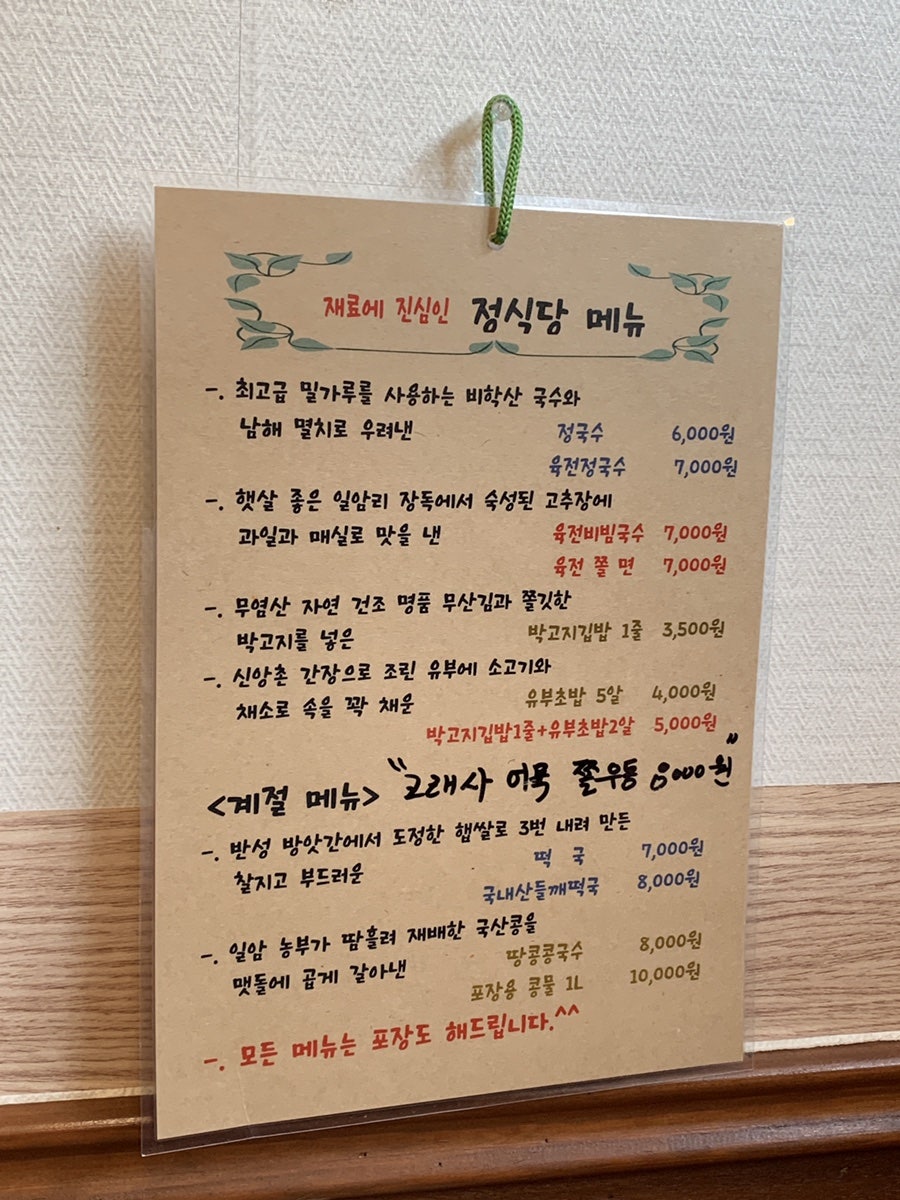 재료에 진심인 정식당 메뉴
-. 최고급 밀가루를 사용하는 비학산 국수와
남해 멸치로 우려낸 정국수 6,000원
육전정국수 7,000원
-. 햇살 좋은 일암리 장독에서 숙성된 고추장에
과일과 매실로 맛을 낸 육전비빔국수 7,000원
육전 쫄 면 7,000원
-. 무염산 자연 건조 명품 무산김과 쫄깃한
박고지를 넣은 박고지김밥 1줄 3,500원
-. 신앙촌 간장으로 조린 유부에 소고기와
채소로 속을 꽉 채운 유부초밥 5알 4,000원
박고지김밥1줄+유부초밥2알 5,000원
<계절 메뉴> "고래사 어묵 쫄우동 8000원"
-. 반성 방앗간에서 도정한 햅쌀로 3번 내려 만든
찰지고 부드러운 떡 국 7,000원
국내산들깨떡국 8,000원
-. 일암 농부가 땀흘려 재배한 국산콩을
맷돌에 곱게 갈아낸 땅콩콩국수 8,000원
포장용 콩물 1L 10,000원
-. 모든 메뉴는 포장도 해드립니다.^^